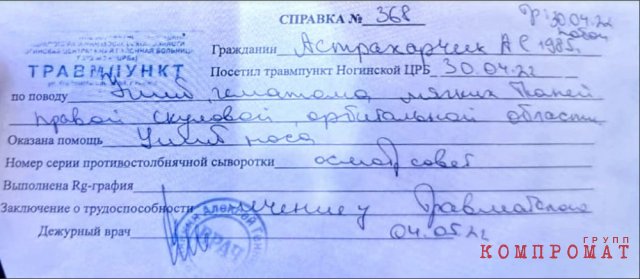 СПРАВКА № 368
30.04.22
ГИНСКАЯ ЦЕНТРАЛЬНАЯ РАЙОННАЯ БОЛЬНИЦ
ТРАВМПУНКТ
Гражданин Астрахарчик А С 1985г.
Посетил травмпункт Ногинской ЦРБ 30.04.22
по поводу Ушиб, гематома мягких тканей
правой скуловой, орбитальной области.
Оказана помощь Ушиб носа
Номер серии противостолбнячной сыворотки осмотр совет
Выполнена Rg-графия
Заключение о трудоспособности лечение у травматолога
Дежурный врач 04.05.22
ВРАЧ
ГРУПП
КОМПРОМАТ